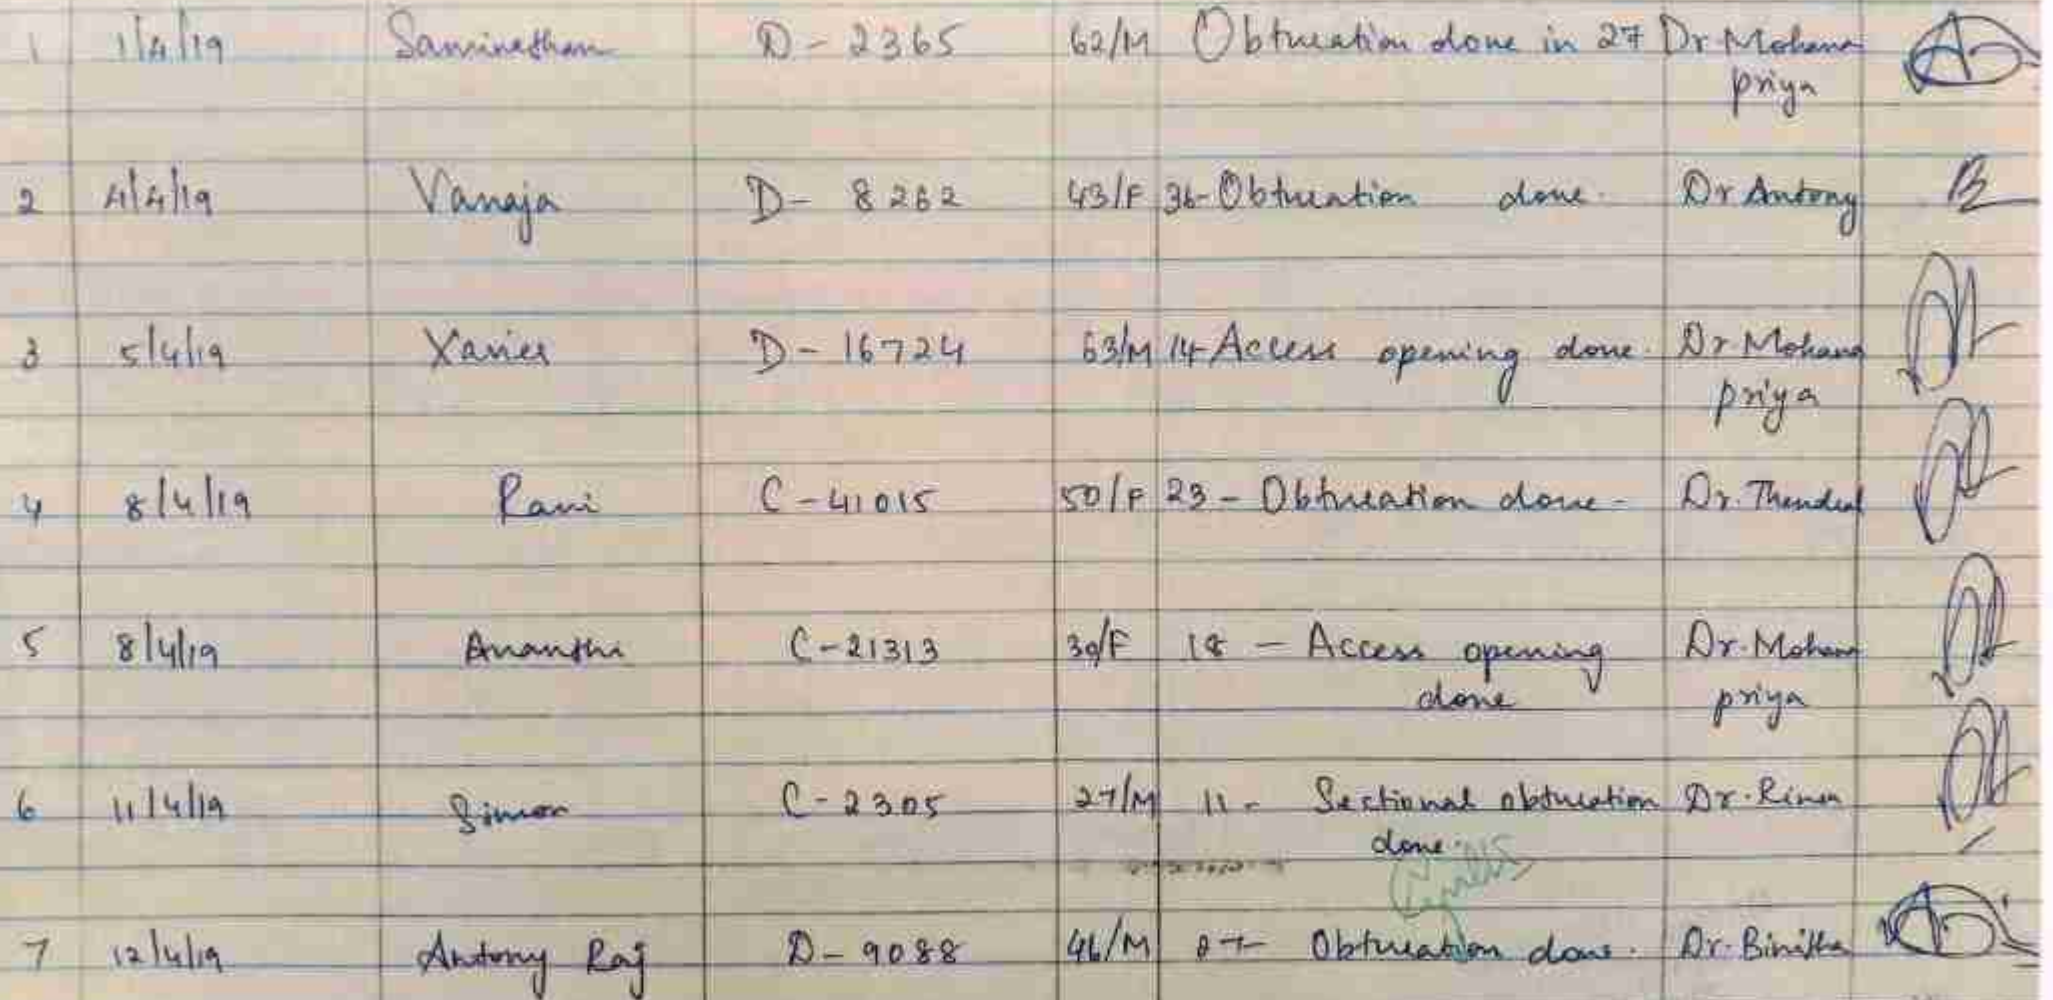 1 1/4/19 Saminathan D - 2365 62/M Obturation done in 27 Dr Mohana
priya
2 4/4/19 Vanaja D - 8262 43/F 36 - Obturation done. Dr Antony
3 5/4/19 Xavier D - 16724 63/M 14 - Access opening done. Dr Mohana
priya
4 8/4/19 Rani C - 41015 50/F 23 - Obturation done - Dr. Thendral
5 8/4/19 Ananthi C - 21313 30/F 18 - Access opening Dr. Mohana
done priya
6 11/4/19 Simon C - 2305 27/M 11 - Sectional obturation Dr.
done.
7 12/4/19 Antony Raj D - 9088 46/M Obturation done. Dr. Binitha